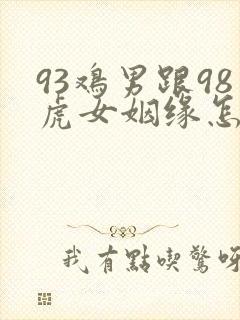 93鸡男跟98
虎女姻缘怎
我有點喫驚呀